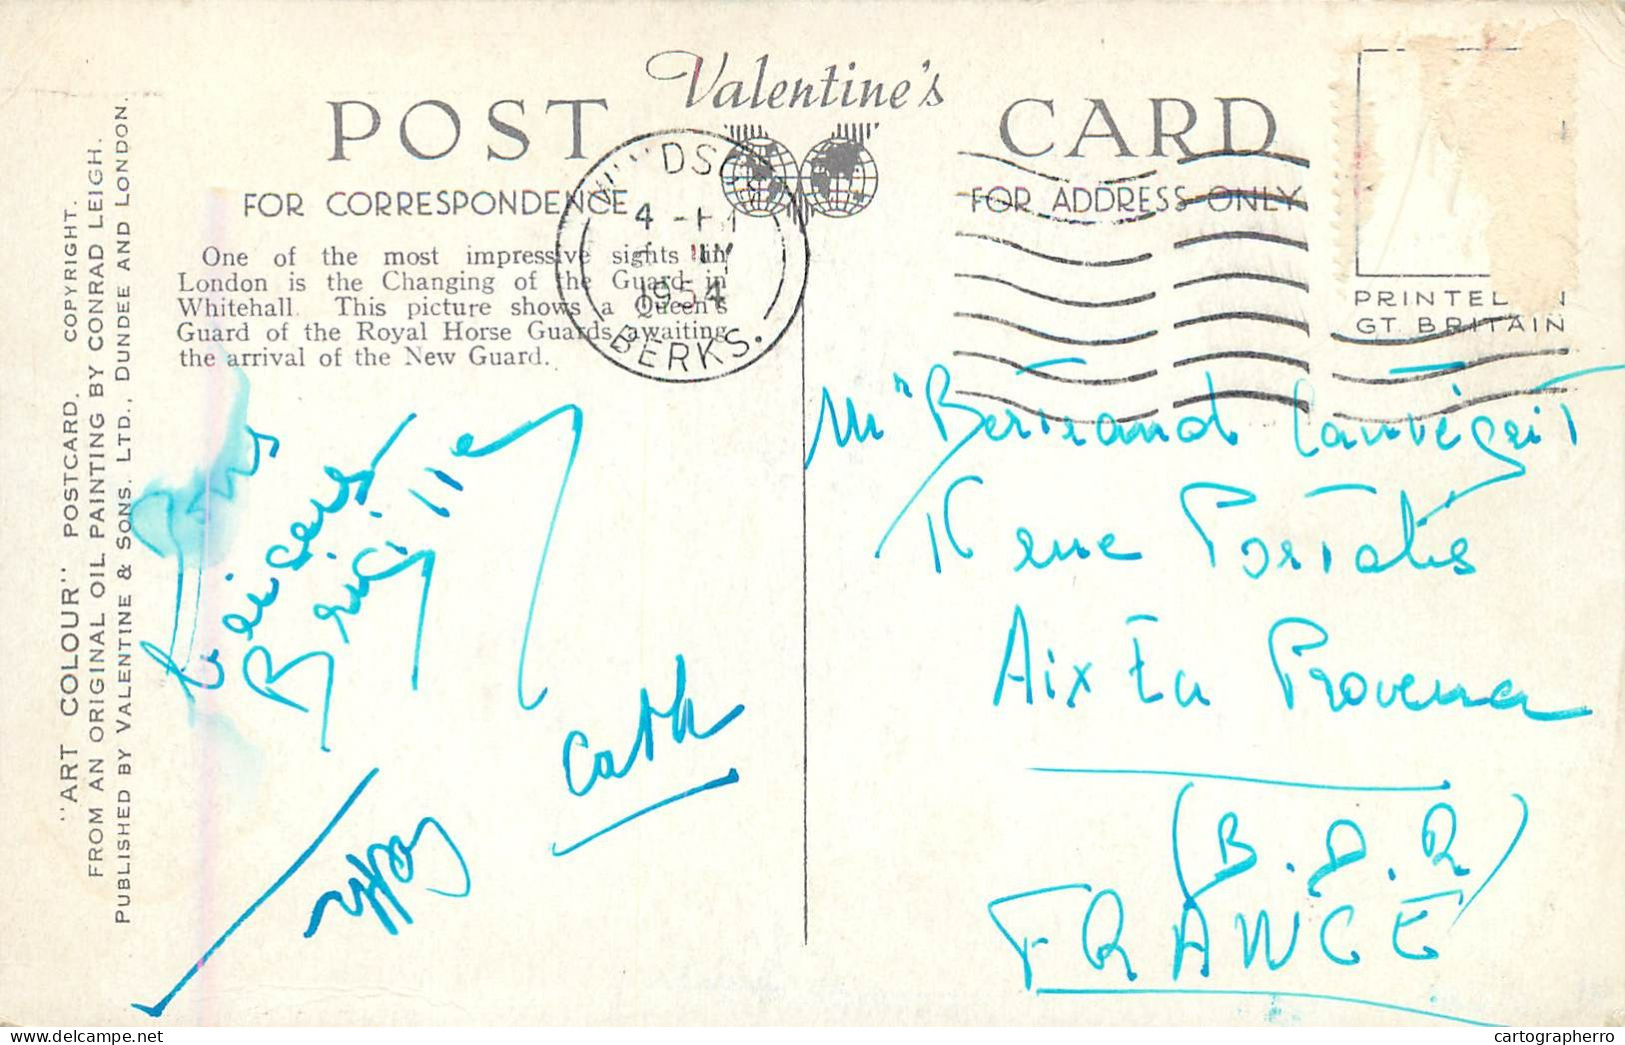 Valentine's
POST CARD
FOR CORRESPONDENCE
FOR ADDRESS ONLY
One of the most impressive sights in
London is the Changing of the Guard in
Whitehall. This picture shows a Queen's
Guard of the Royal Horse Guards awaiting
the arrival of the New Guard.
DS
4 - PM
1954
BERKS.
PRINTED IN
GT. BRITAIN
"ART COLOUR" POSTCARD. COPYRIGHT.
FROM AN ORIGINAL OIL PAINTING BY CONRAD LEIGH.
PUBLISHED BY VALENTINE & SONS, LTD., DUNDEE AND LONDON.
Bons
baisers
Brigitte
Cath
Mr Bertrand
rue Portalis
Aix En Provence
(B.D.R)
FRANCE
cartographerro